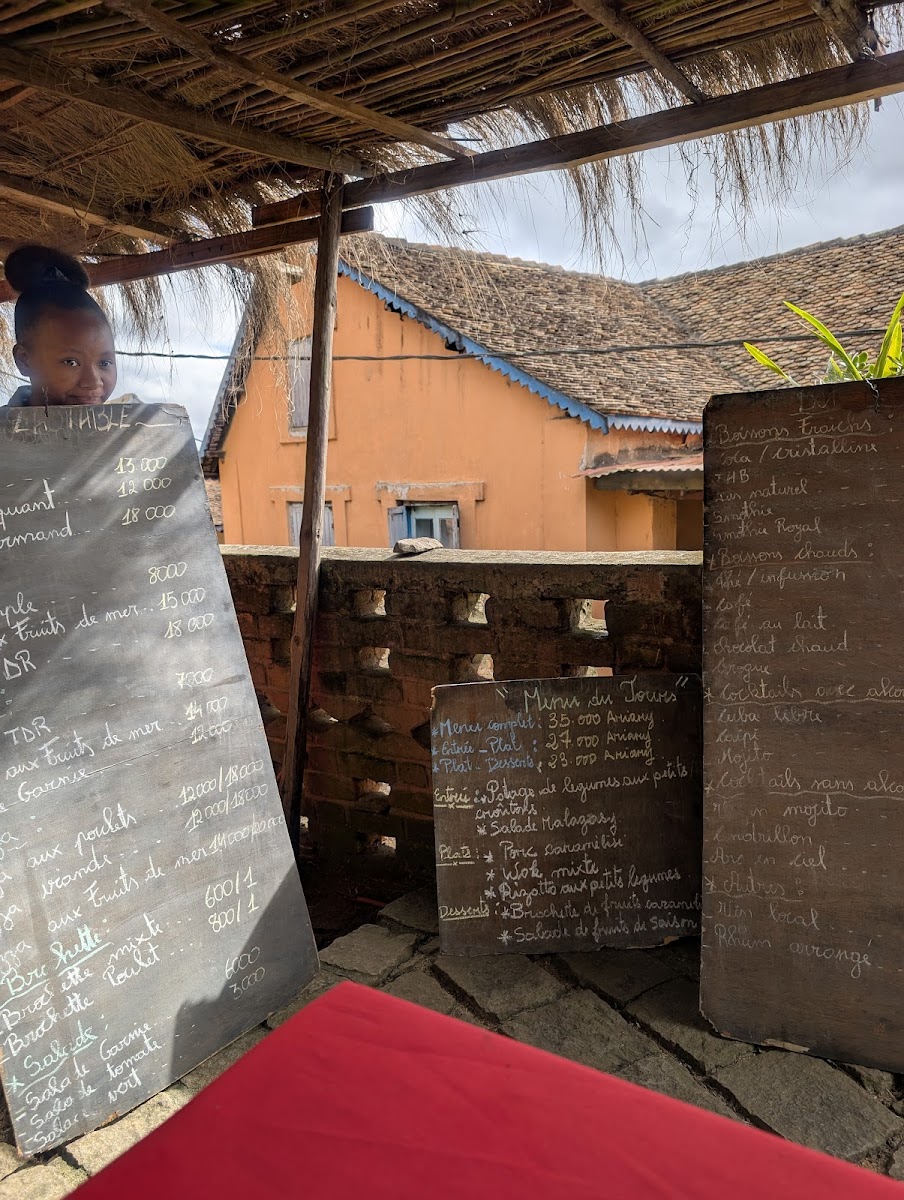 LA TABLE
13 000
quant... 12 000
ormand 18 000
8000
ple
x Fruits de mer... 15 000
DR 18 000
7000
TDR
aux Fruits de mer... 14 000
Garnie 12 000
aux poulets 12000/18000
viande... 12000/18000
aux Fruits de mer 14000/20 000
Brochette
-Brochette mixte... 600/1
Brochette Poulet... 800/1
* Salade :
- Salade Garnie 6000
- Salade de tomate 3.000
- Salade vert
" Menu du Jours"
* Menu complet : 35.000 Ariary
* Entrée - Plat : 27 000 Ariary
* Plat - Desserts : 23.000 Ariary
Entrée : * Potage de legumes aux petits
croûtons
* Salade Malagasy
Plats : * Porc caramélisé
* Wok mixte
* Rizotto aux petits legumes
Desserts : * Brochette de fruits caramel
* Salade de fruits de saison
Boissons Fraichs :
cola / cristalline
THB
jus naturel
Smothie
Smothie Royal
* Boissons chauds :
thé / infussion
Café
Café au lait
chocolat chaud
Grogue
* Cocktails avec alco
Cuba libre
Caipi
Mojito
* Cocktails sans alco
mojito
Cendrillon
Arc en ciel
* Autres :
Vin local
Rhum arrangé